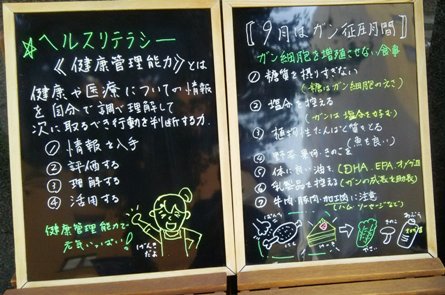 ☆ヘルスリテラシー
《健康管理能力》とは
健康や医療についての情報
を自分で調べ理解して
次に取るべき行動を判断する力
① 情報を入手
② 評価する
③ 理解する
④ 活用する
健康管理能力で
元気いっぱい!
げんき
だよ
【9月はガン征圧月間】
ガン細胞を増殖させない食事
① 糖質を摂りすぎない
(糖はガン細胞のエサ)
② 塩分を控える
(ガンは塩分を好む)
③ 植物性たんぱく質をとる
(魚も良い)
④ 野菜・果物・きのこを
⑤ 体に良い油を(DHA、EPA、オメガ3
⑥ 乳製品を控える(ガンの成長を助長)
⑦ 牛肉、豚肉、加工肉に注意
(ハム・ソーセージなど)